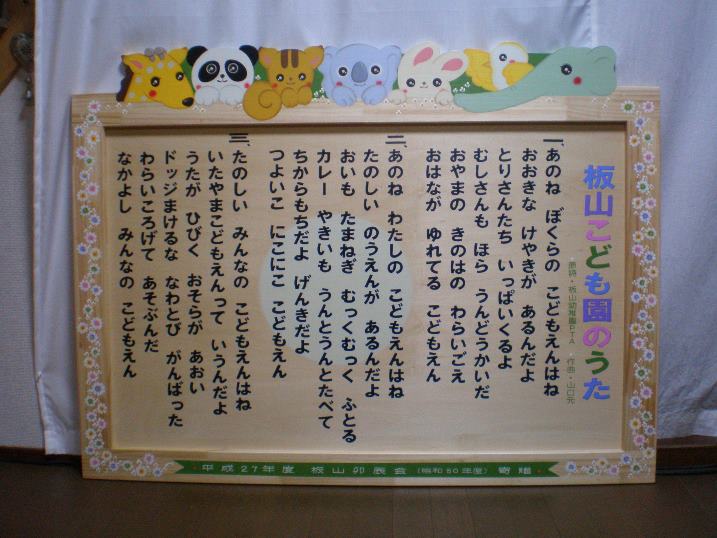 板山こども園のうた
原詩・板山幼稚園PTA 作曲・山口元
一、あのね ぼくらの こどもえんはね
おおきな けやきが あるんだよ
とりさんたち いっぱいくるよ
むしさんも ほら うんどうかいだ
おやまの きのはの わらいごえ
おはなが ゆれてる こどもえん
二、あのね わたしの こどもえんはね
たのしい のうえんが あるんだよ
おいも たまねぎ むっくむっく ふとる
カレー やきいも うんとうんとたべて
ちからもちだよ げんきだよ
つよいこ にこにこ こどもえん
三、たのしい みんなの こどもえんはね
いたやまこどもえんって いうんだよ
うたが ひびく おそらが あおい
ドッジまけるな なわとび がんばった
わらいころげて あそぶんだ
なかよし みんなの こどもえん
平成27年度 板山卯辰会 (昭和50年度) 寄贈